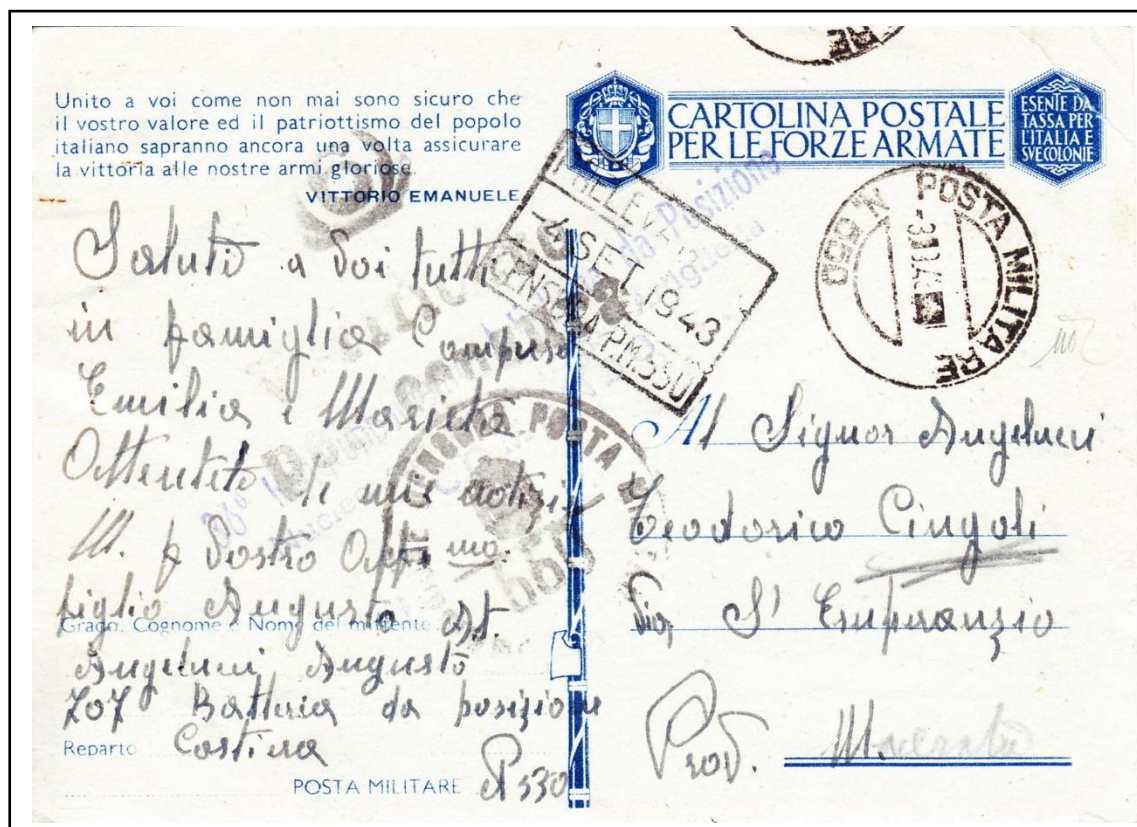 Unito a voi come non mai sono sicuro che
il vostro valore ed il patriottismo del popolo
italiano sapranno ancora una volta assicurare
la vittoria alle nostre armi gloriose.
VITTORIO EMANUELE
CARTOLINA POSTALE
PER LE FORZE ARMATE
ESENTE DA
TASSA PER
L'ITALIA E
SVE COLONIE
POSTA MILITARE
N. 550
-4 SET 1943
CENSURA P.M. 550
da Posizione
Saluti a Voi tutti
in famiglia Compreso
Emilia e Marieta
di mie notizie
Vostro
figlio Augusto
Grado, Cognome e Nome del mittente
Angeluci Augusto
707 Batteria da posizione
Reparto Costiera
POSTA MILITARE 550
Al Signor Angeluci
Teodorico Cingoli
Via S' Esuperanzio
Prov. Macerata